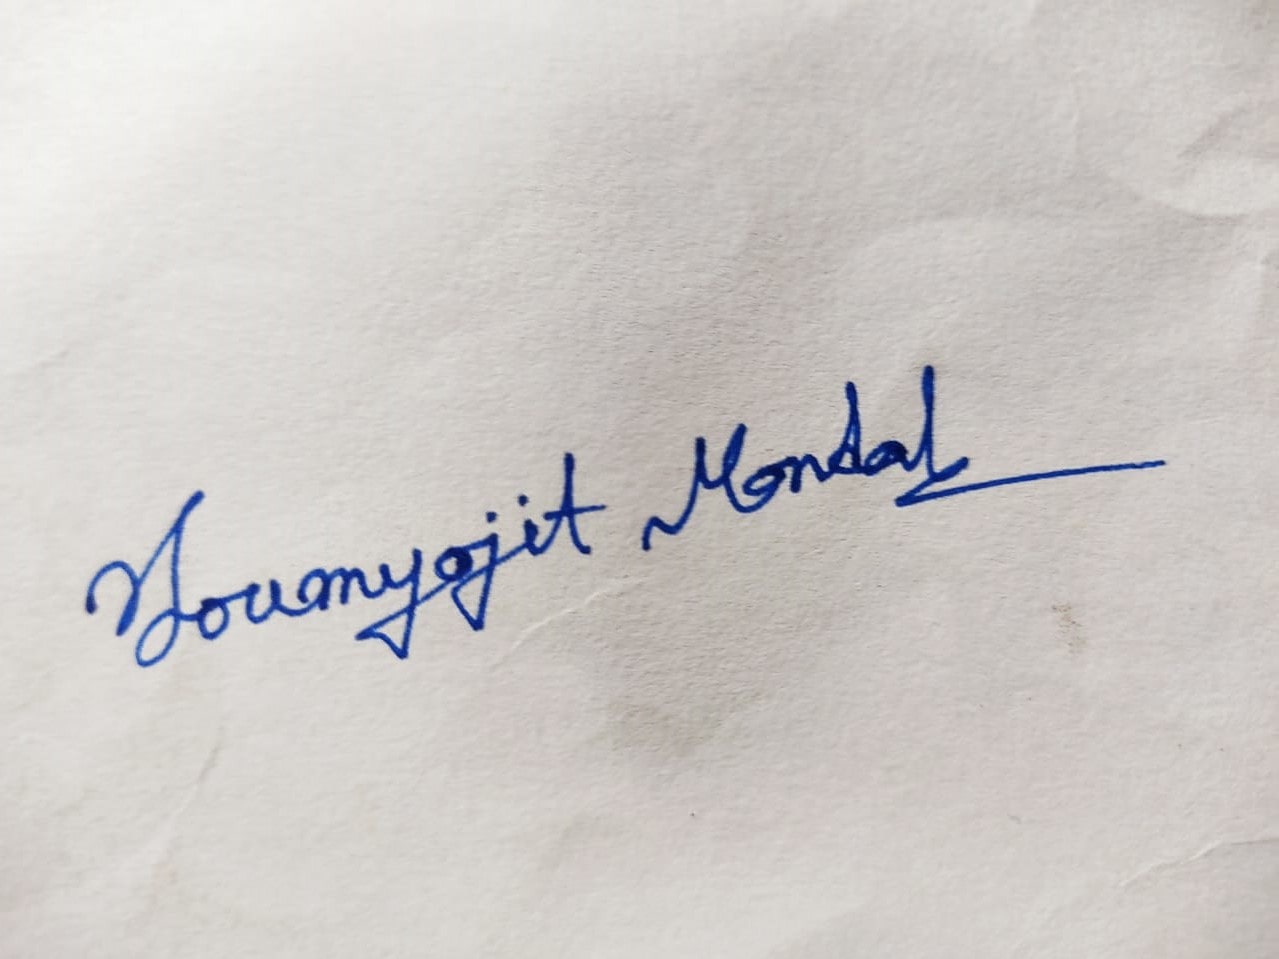 Soumyojit Mondal